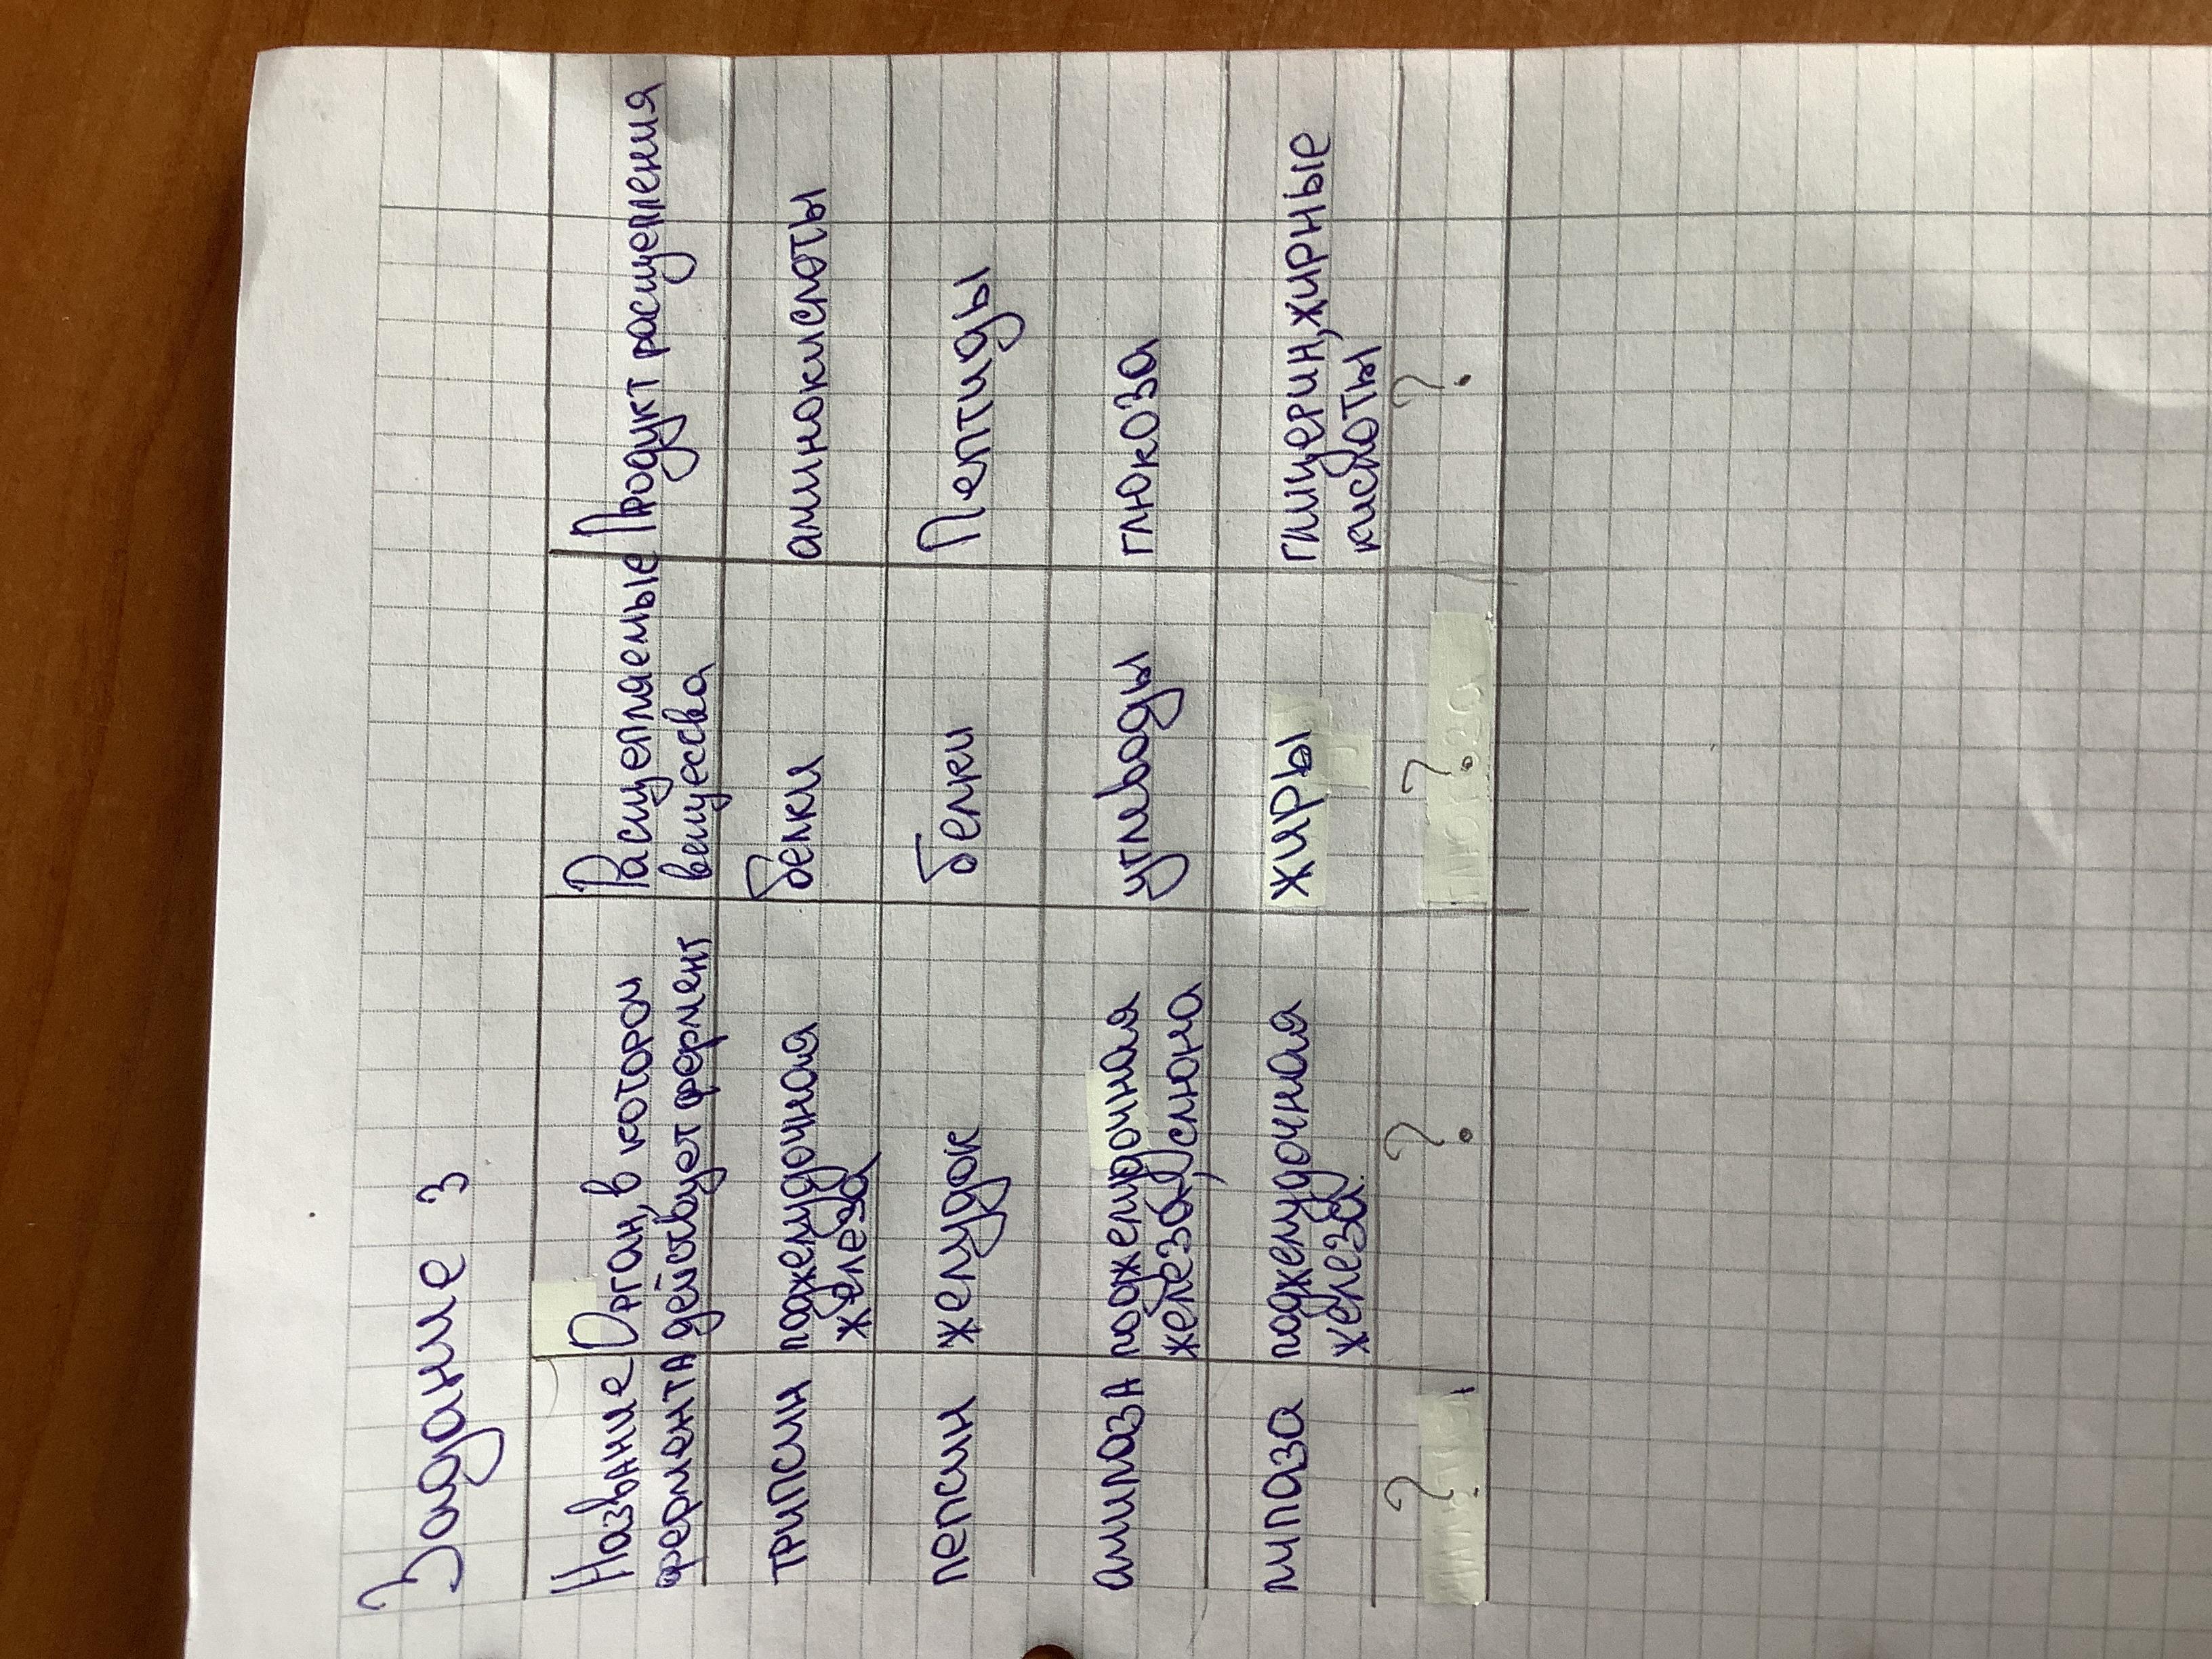 Задание 3
Название фермента
Орган, в котором действует фермент
Расщепляемые вещуесва
Продукт расщепления
трипсин
поджелудочная железа
белки
аминокислоты
пепсин
желудок
белки
Пептиды
амилаза
поджелудочная железа, слюна
углеводы
глюкоза
липаза
поджелудочная железа
жиры
глицерин, жирные кислоты
?
?
?
?